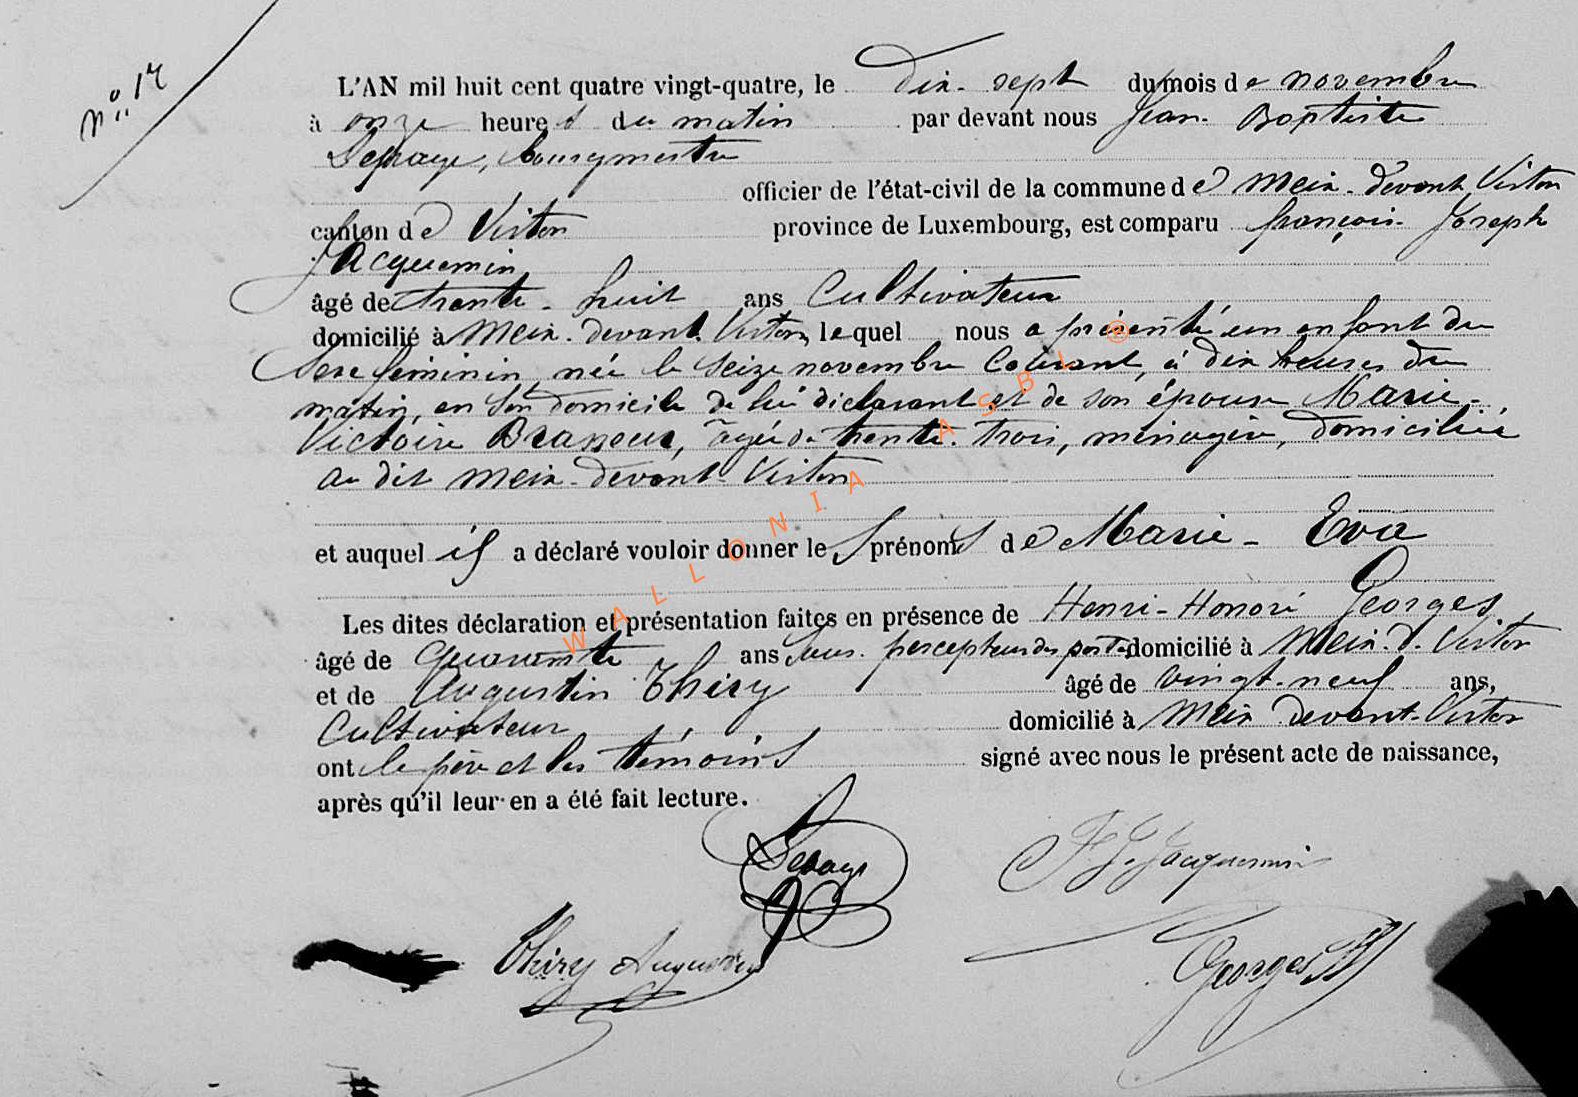 N° 17
L'AN mil huit cent quatre vingt-quatre, le dix-sept du mois de novembre
à onze heures du matin par devant nous Jean-Baptiste
Lepage, bourgmestre
officier de l'état-civil de la commune de Meix-devant-Virton
canton de Virton province de Luxembourg, est comparu françois-Joseph
Jacquemin
âgé de trente-huit ans Cultivateur
domicilié à Meix-devant-Virton, lequel nous a présenté un enfant du
Sexe féminin, née le Seize novembre Courant, à dix heures du
matin, en Son domicile de lui déclarant et de son épouse Marie-
Victoire Brasseur, âgée de trente-trois, ménagère, domiciliée
au dit Meix-devant-Virton
et auquel il a déclaré vouloir donner les prénoms de Marie-Eva
Les dites déclaration et présentation faites en présence de Henri-Honoré Georges
âgé de quarante ans Sous-percepteur des postes domicilié à Meix-d-Virton
et de Augustin Thiry âgé de vingt-neuf ans,
Cultivateur domicilié à Meix devant-Virton
ont le père et les témoins signé avec nous le présent acte de naissance,
après qu'il leur en a été fait lecture.
Lepage
F. J. Jacquemin
Thiry Augustin
Georges H
WALLONIA ASBL ®